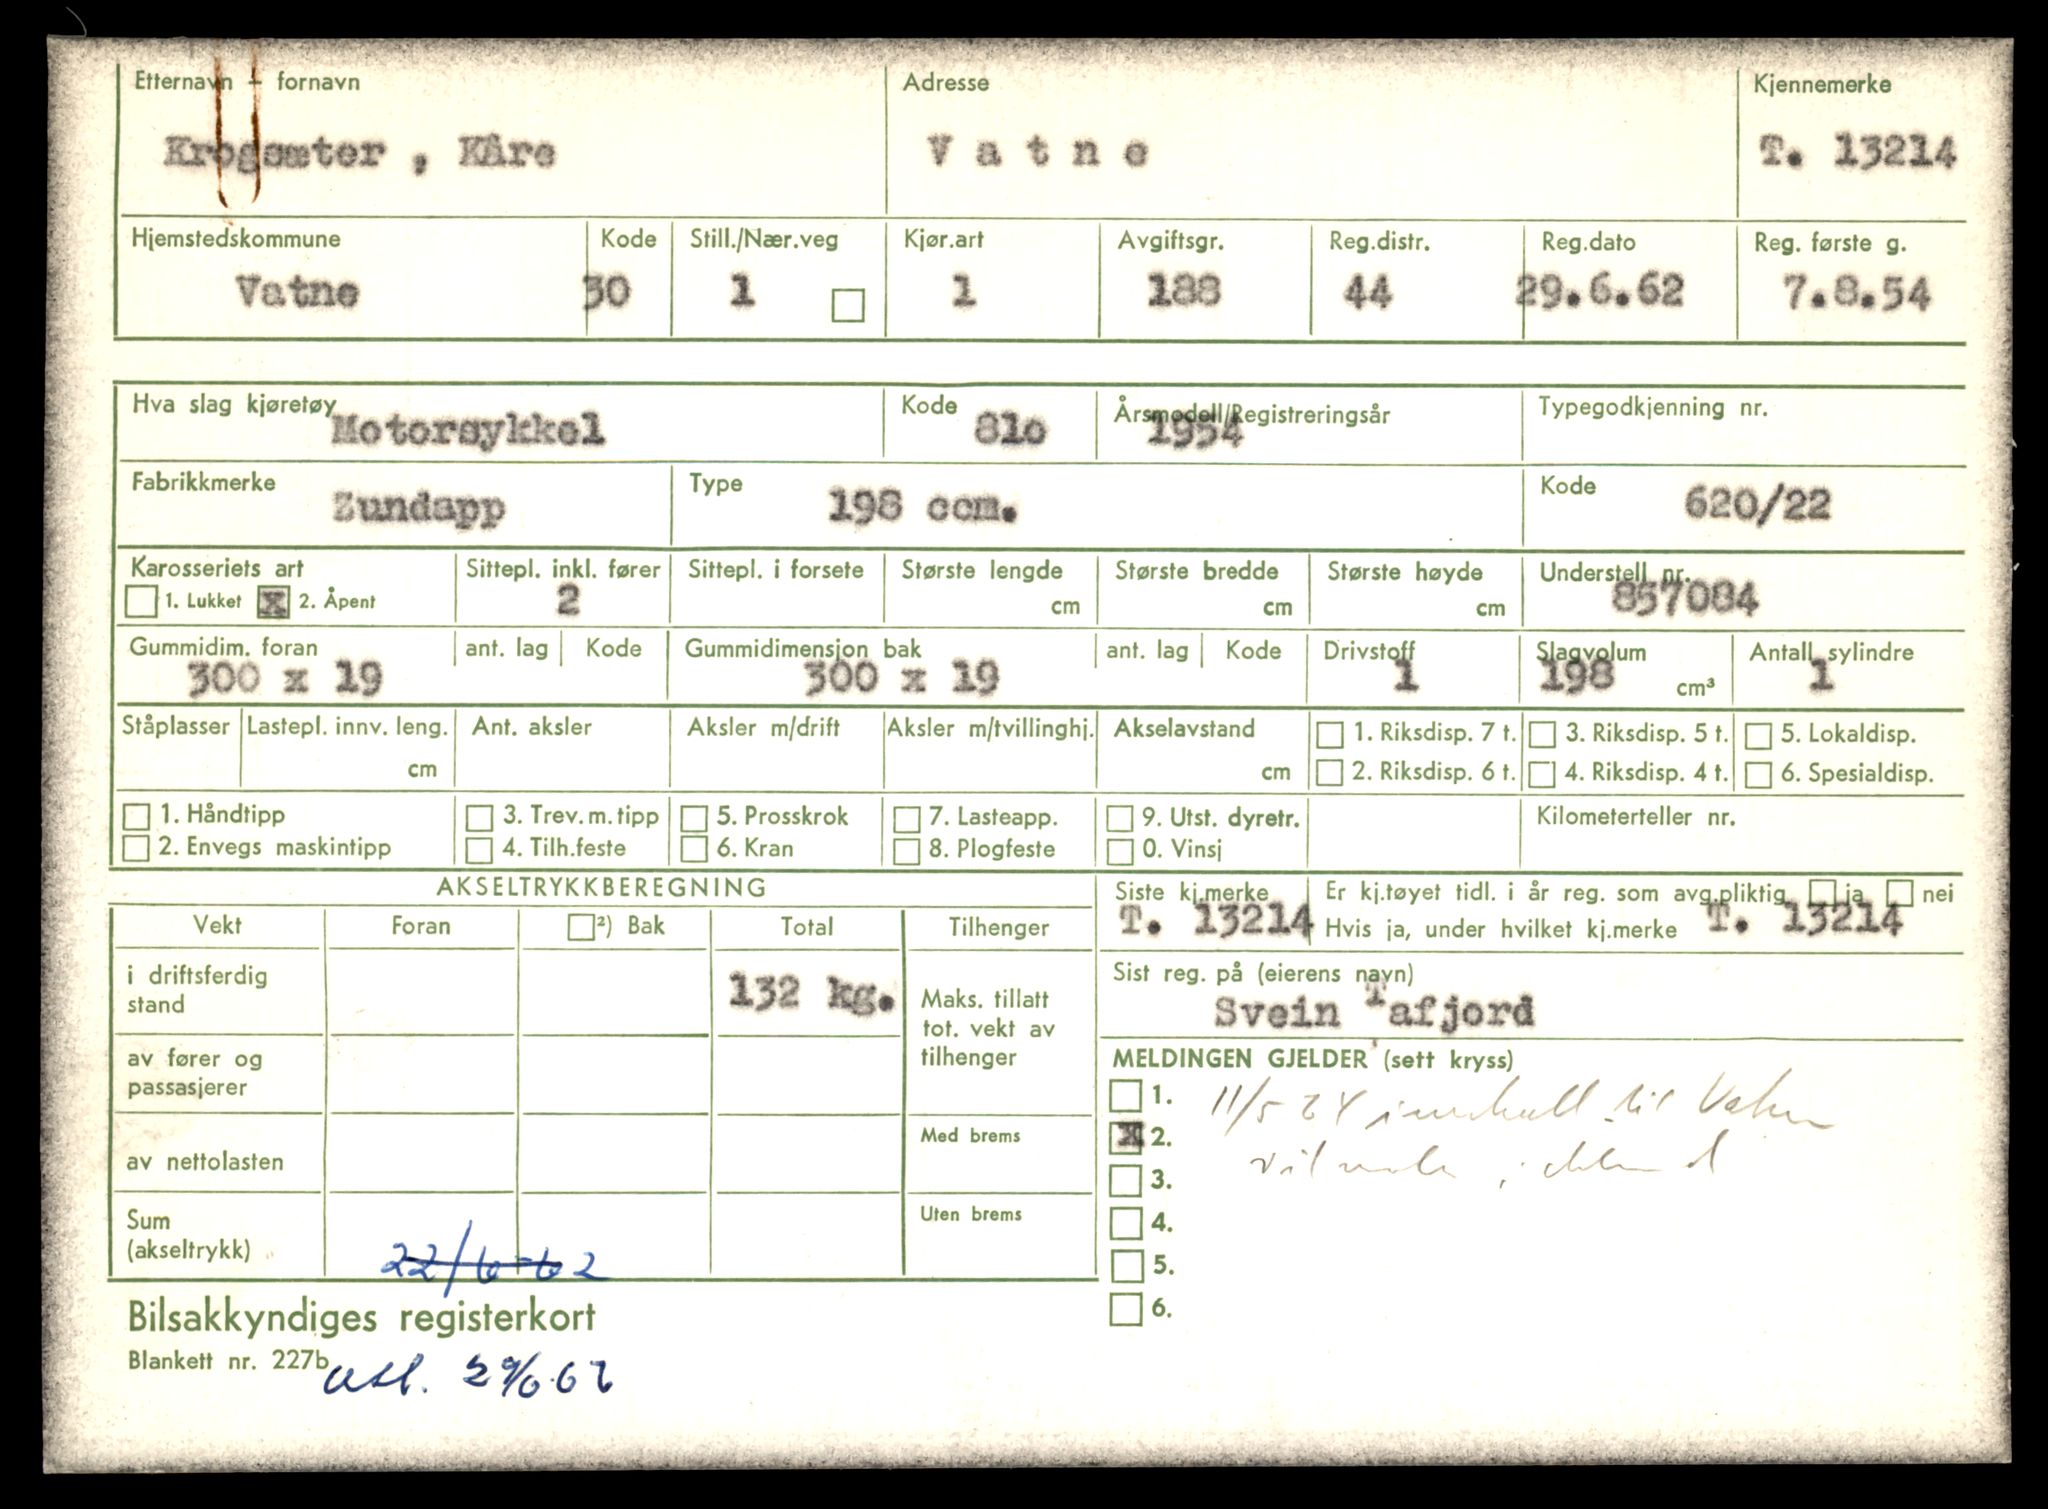 Etternavn + fornavn Adresse Kjennemerke
Krogsæter , Kåre V a t n e T. 13214
Hjemstedskommune Kode Still./Nær.veg Kjør.art Avgiftsgr. Reg.distr. Reg.dato Reg. første g.
Vatne 30 1 1 188 44 29.6.62 7.8.54
Hva slag kjøretøy Kode Årsmodell/Registreringsår Typegodkjenning nr.
Motorsykkel 81o 1954
Fabrikkmerke Type Kode
Zundapp 198 ccm. 620/22
Karosseriets art Sittepl. inkl. fører Sittepl. i forsete Største lengde Største bredde Største høyde Understell nr.
1. Lukket x 2. Åpent 2 cm cm cm 857084
Gummidim. foran ant. lag Kode Gummidimensjon bak ant. lag Kode Drivstoff Slagvolum Antall sylindre
300 x 19 300 x 19 1 198 cm³ 1
Ståplasser Lastepl. innv. leng. Ant. aksler Aksler m/drift Aksler m/tvillinghj. Akselavstand 1. Riksdisp. 7 t. 3. Riksdisp. 5 t. 5. Lokaldisp.
cm cm 2. Riksdisp. 6 t. 4. Riksdisp. 4 t. 6. Spesialdisp.
1. Håndtipp 3. Trev. m. tipp 5. Prosskrok 7. Lasteapp. 9. Utst. dyretr. Kilometerteller nr.
2. Envegs maskintipp 4. Tilh.feste 6. Kran 8. Plogfeste 0. Vinsj
AKSELTRYKKBEREGNING
Vekt Foran ²) Bak Total Tilhenger
i driftsferdig stand 132 kg.
Maks. tillatt tot. vekt av tilhenger
av fører og passasjerer
av nettolasten
Med brems
Sum (akseltrykk)
Uten brems
22/6-62
Siste kj.merke Er kj.tøyet tidl. i år reg. som avg.pliktig ja nei
T. 13214 Hvis ja, under hvilket kj.merke T. 13214
Sist reg. på (eierens navn)
Svein Tafjord
MELDINGEN GJELDER (sett kryss)
1. 11/5 til
x 2.
3.
4.
5.
6.
Bilsakkyndiges registerkort
Blankett nr. 227b
utl. 29/6.62